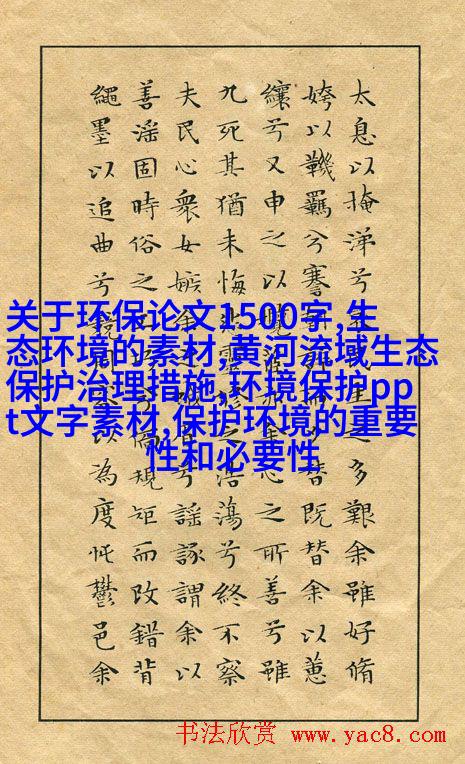 太息以掩涕兮之多艱余雖好脩
姱以鞿羈兮謇夕替既替余以蕙
纕兮又申之以心之所善兮雖
九死其猶未悔之浩蕩兮終不察
夫民心衆女嫉兮謠諑謂余以
善淫固時俗之偭規矩而改錯背
繩墨以追曲兮以為度忳鬱邑余
关于环保论文1500字,生
态环境的素材,黄河流域生态
保护治理措施,环境保护pp
t文字素材,保护环境的重要
性和必要性
书法欣赏 www.yac8.com